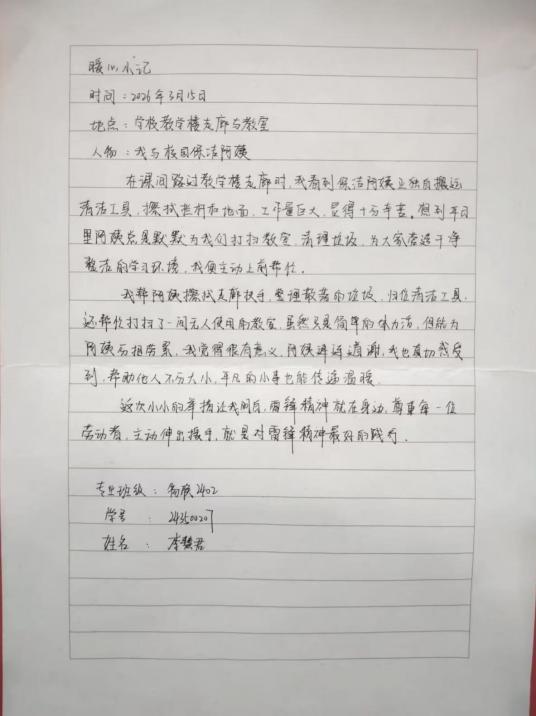 暖心小记
时间：2026年3月15日
地点：学校教学楼走廊与教室
人物：我与校园保洁阿姨
在课间路过教学楼走廊时，我看到保洁阿姨正独自搬运
清洁工具，擦拭栏杆和地面，工作量巨大，显得十分辛苦。想到平日
里阿姨总是默默为我们打扫教室，清理垃圾，为大家营造干净
整洁的学习环境，我便主动上前帮忙。
我帮阿姨擦拭走廊扶手，整理散落的垃圾，归位清洁工具，
还帮忙打扫了一间无人使用的教室，虽然只是简单的体力活，但能为
阿姨分担劳累，我觉得很有意义，阿姨连连道谢，我也真切感受
到，帮助他人不分大小，平凡的小事也能传递温暖。
这次小小的举措让我明白，雷锋精神就在身边，尊重每一位
劳动者，主动伸出援手，就是对雷锋精神最好的践行。
专业班级：2402
学号：
姓名：李慧君